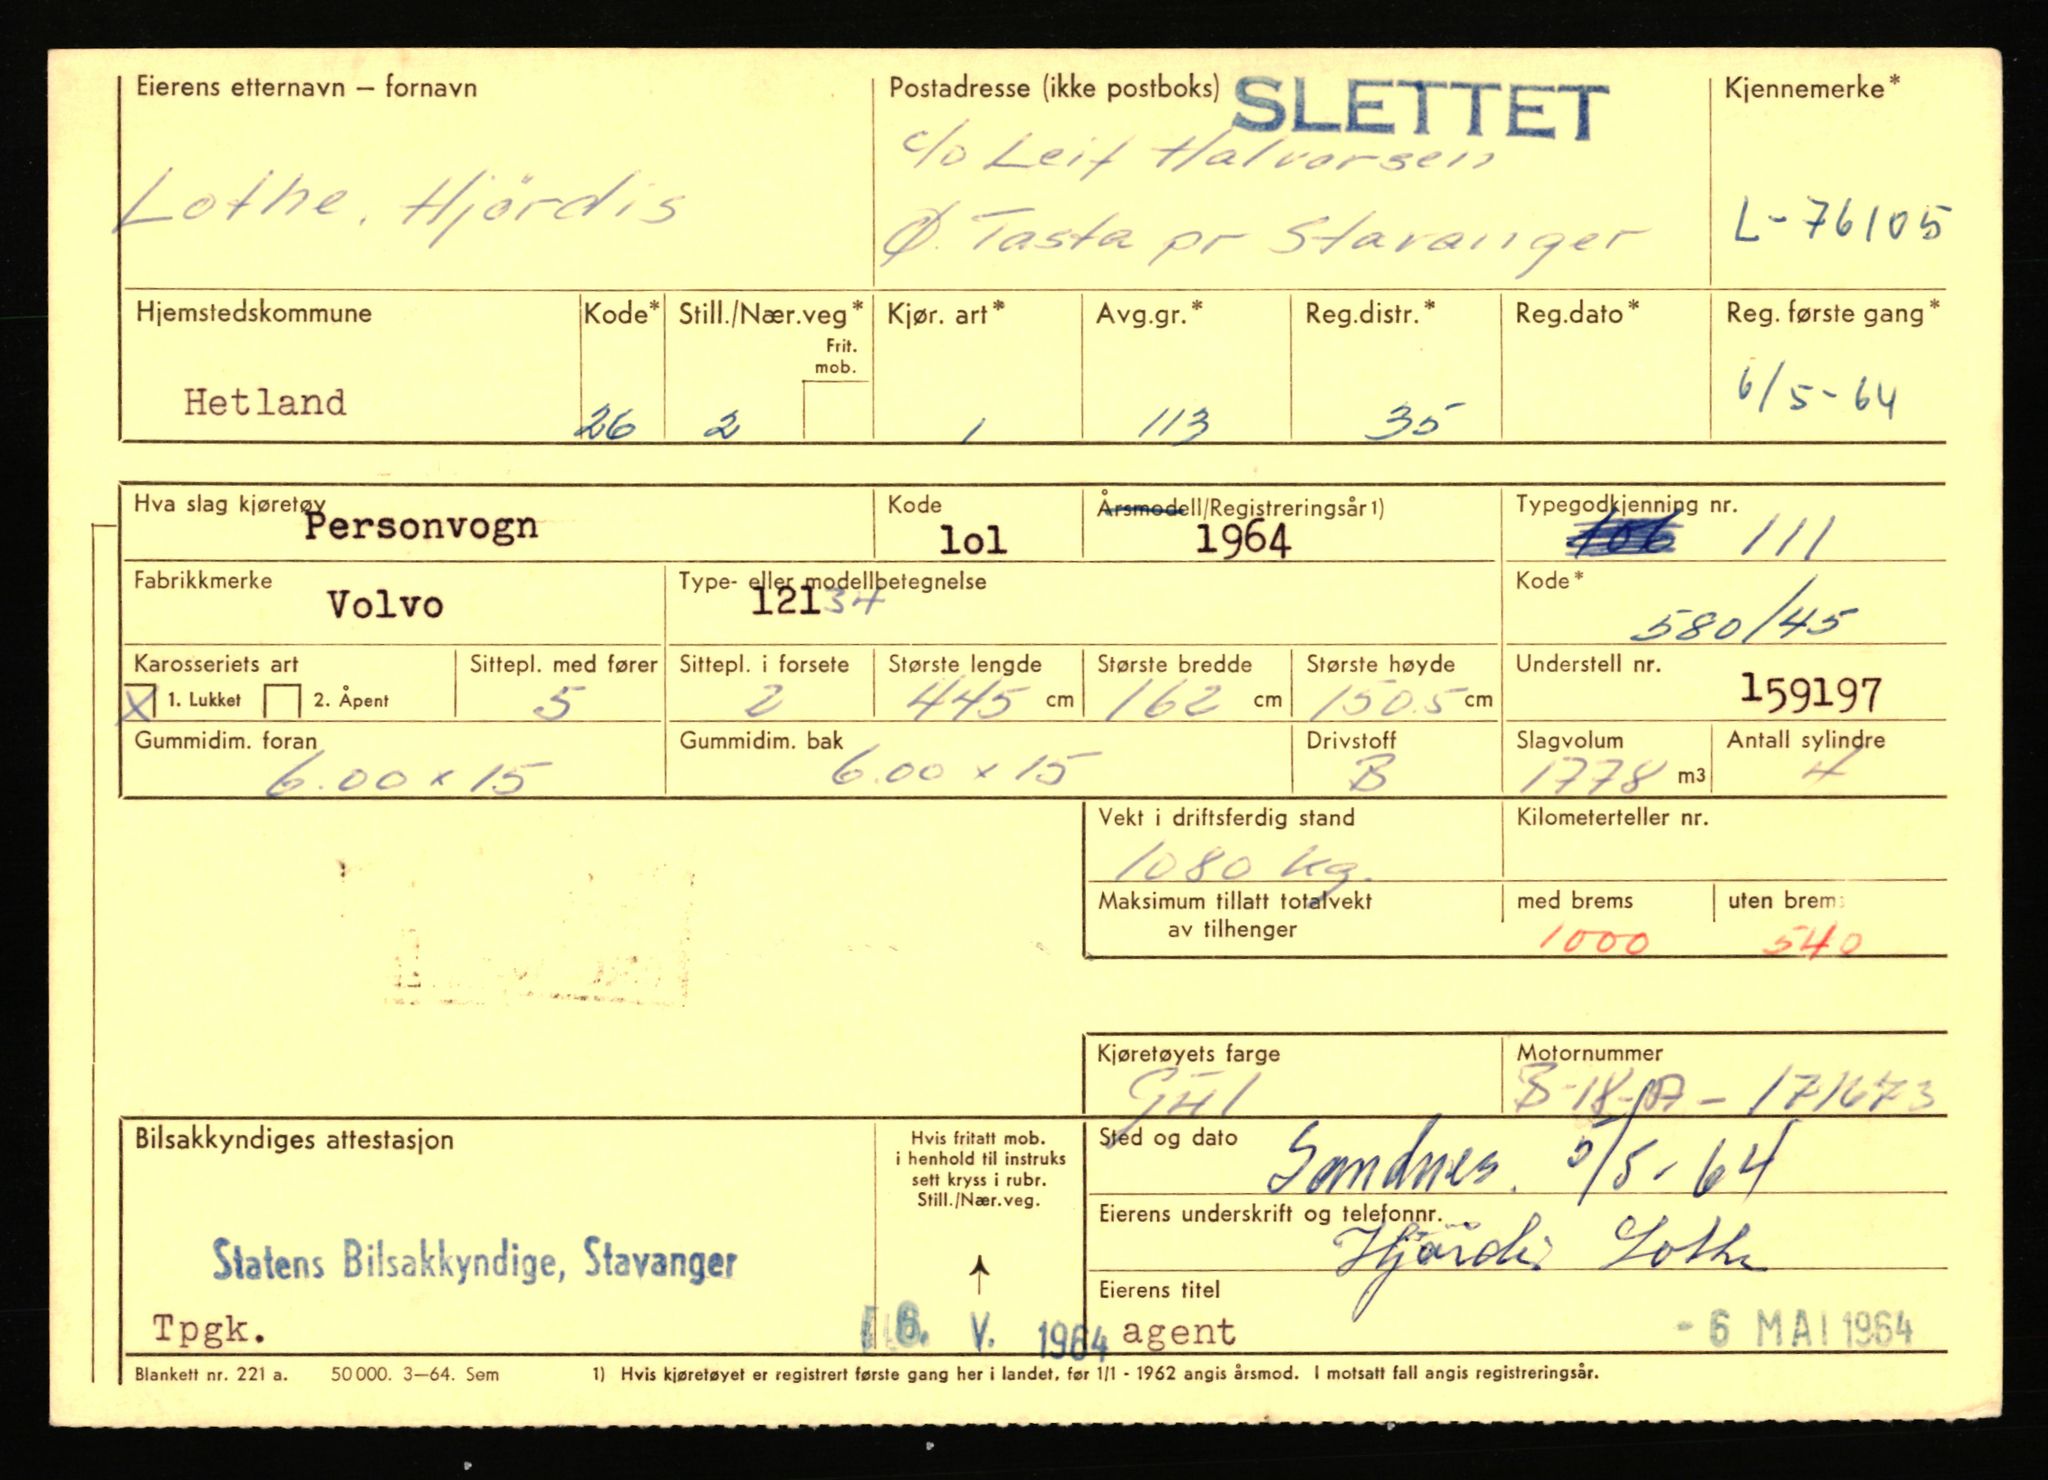 Eierens etternavn – fornavn
Lothe, Hjördis
Postadresse (ikke postboks)
SLETTET
c/o Leif Halvorsen
Ø. Tasta pr Stavanger
Kjennemerke*
L-76105
Hjemstedskommune
Hetland
Kode*
26
Still./Nær.veg*
Frit.
mob.
2
Kjør. art*
1
Avg.gr.*
113
Reg.distr.*
35
Reg.dato*
Reg. første gang*
6/5-64
Hva slag kjøretøy
Personvogn
Kode
lol
Årsmodell/Registreringsår1)
1964
Typegodkjenning nr.
106 111
Fabrikkmerke
Volvo
Type- eller modellbetegnelse
12134
Kode*
580/45
Karosseriets art
X 1. Lukket 2. Åpent
Sittepl. med fører
5
Sittepl. i forsete
2
Største lengde
445 cm
Største bredde
162 cm
Største høyde
150.5 cm
Understell nr.
159197
Gummidim. foran
6.00 x 15
Gummidim. bak
6.00 x 15
Drivstoff
B
Slagvolum
1778 m3
Antall sylindre
4
Vekt i driftsferdig stand
1080 kg.
Kilometerteller nr.
Maksimum tillatt totalvekt
av tilhenger
med brems
1000
uten brem
540
Kjøretøyets farge
Motornummer
Bilsakkyndiges attestasjon
Statens Bilsakkyndige, Stavanger
Tpgk.
Hvis fritatt mob.
i henhold til instruks
sett kryss i rubr.
Still./Nær.veg.
6. V. 1964
Sted og dato
Sandnes. 5/5-64
Eierens underskrift og telefonnr.
Hjördis Lothe
Eierens titel
agent
- 6 MAI 1964
Blankett nr. 221 a. 50 000. 3–64. Sem
1) Hvis kjøretøyet er registrert første gang her i landet, før 1/1 - 1962 angis årsmod. I motsatt fall angis registreringsår.